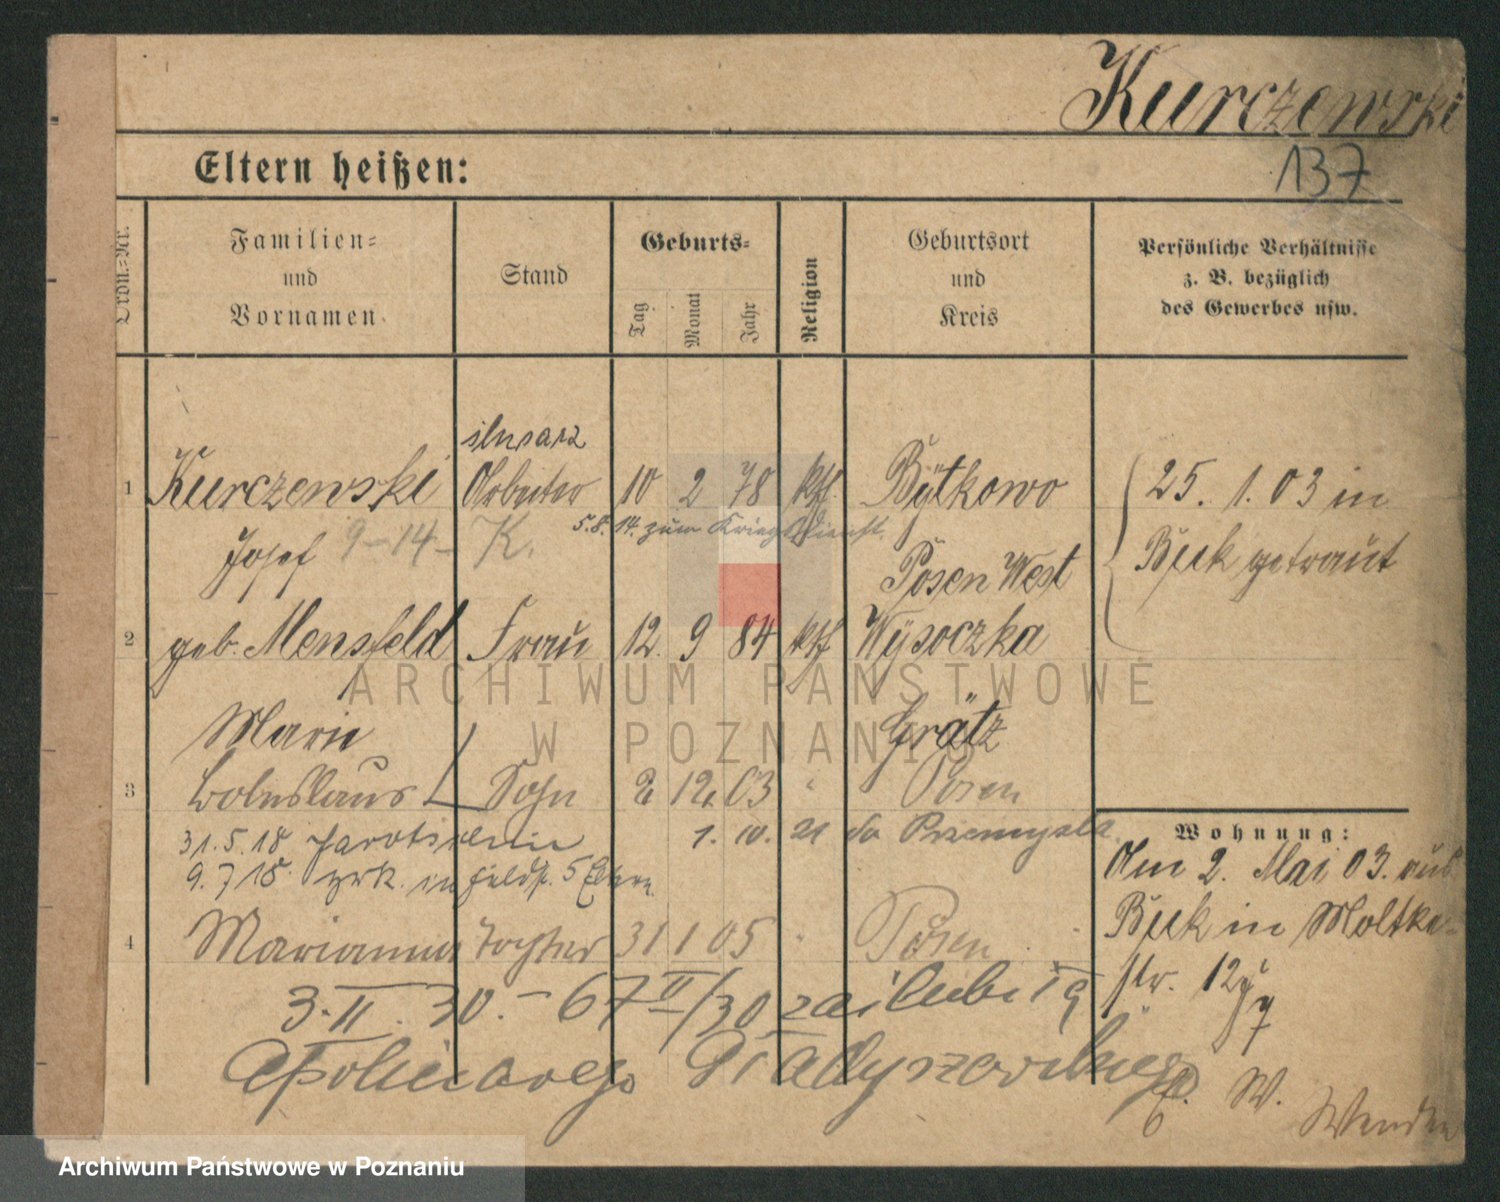 Kurczewski
137
Eltern heißen:
Ordn.-Nr.
Familien-
und
Vornamen
Stand
Geburts-
Tag
Monat
Jahr
Religion
Geburtsort
und
Kreis
Persönliche Verhältnisse
z. B. bezüglich
des Gewerbes usw.
ślusarz
1 Kurczewski Arbeiter 10 2 78 kth. Bytkowo
Josef 9-14- K. 5.8.14. zum Kriegsdienst.
Posen West
25. 1. 03 in
Buk getraut
2 geb. Mensfeld Frau 12. 9 84 kth Wysoczka
Marie
Grätz
3 Boleslaus Sohn 2 12. 03 " Posen
31.5.18 Jarotschin 1. 10. 21 do Przemyśla
9. 7 18. zrk. in
4 Marianna Tochter 31 1 05 " Posen
3. II. 30. - 67 II/30 zaślubiła
Apolinarego
Wohnung:
Am 2. Mai 03. aus
Buk in Moltke-
str. 12
E. W.
ARCHIWUM PAŃSTWOWE
W POZNANIU
Archiwum Państwowe w Poznaniu